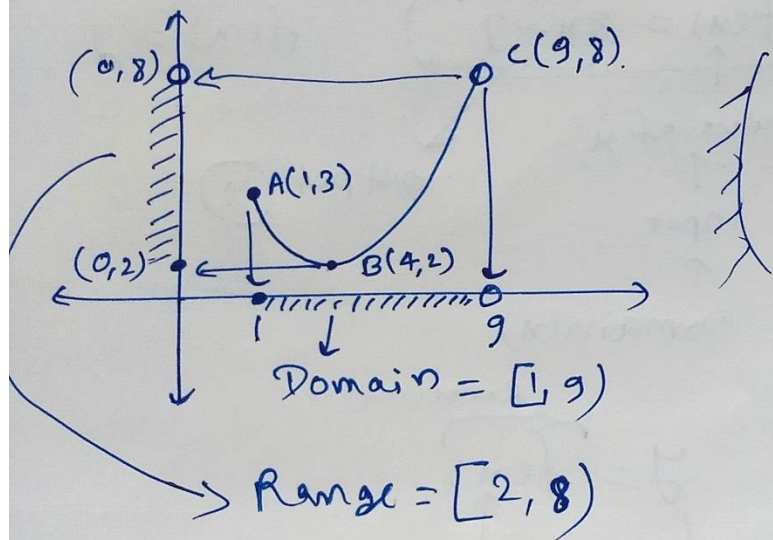 (0,8)
C(9,8).
A(1,3)
(0,2)
B(4,2)
1
9
Domain = [1, 9)
Range = [2, 8)